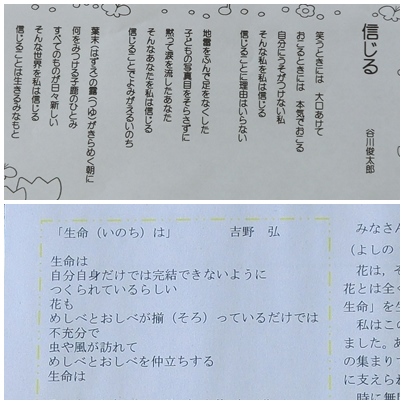 信じる
谷川俊太郎
笑うときには 大口あけて
おこるときには 本気でおこる
自分にうそがつけない私
そんな私を私は信じる
信じることに理由はいらない
地雷をふんで足をなくした
子どもの写真目をそらさずに
黙って涙を流したあなた
そんなあなたを私は信じる
信じることでよみがえるいのち
葉末(はずえ)の露(つゆ)がきらめく朝に
何をみつける子鹿のひとみ
すべてのものが日々新しい
そんな世界を私は信じる
信じることは生きるみなもと
「生命(いのち)は」 吉野 弘
生命は
自分自身だけでは完結できないように
つくられているらしい
花も
めしべとおしべが揃(そろ)っているだけでは
不充分で
虫や風が訪れて
めしべとおしべを仲立ちする
生命は
みなさん
(よしの
花は、そ
花とは全く
生命」を生
私はこの
ました。あ
の集まり
に支えられ
時に無関